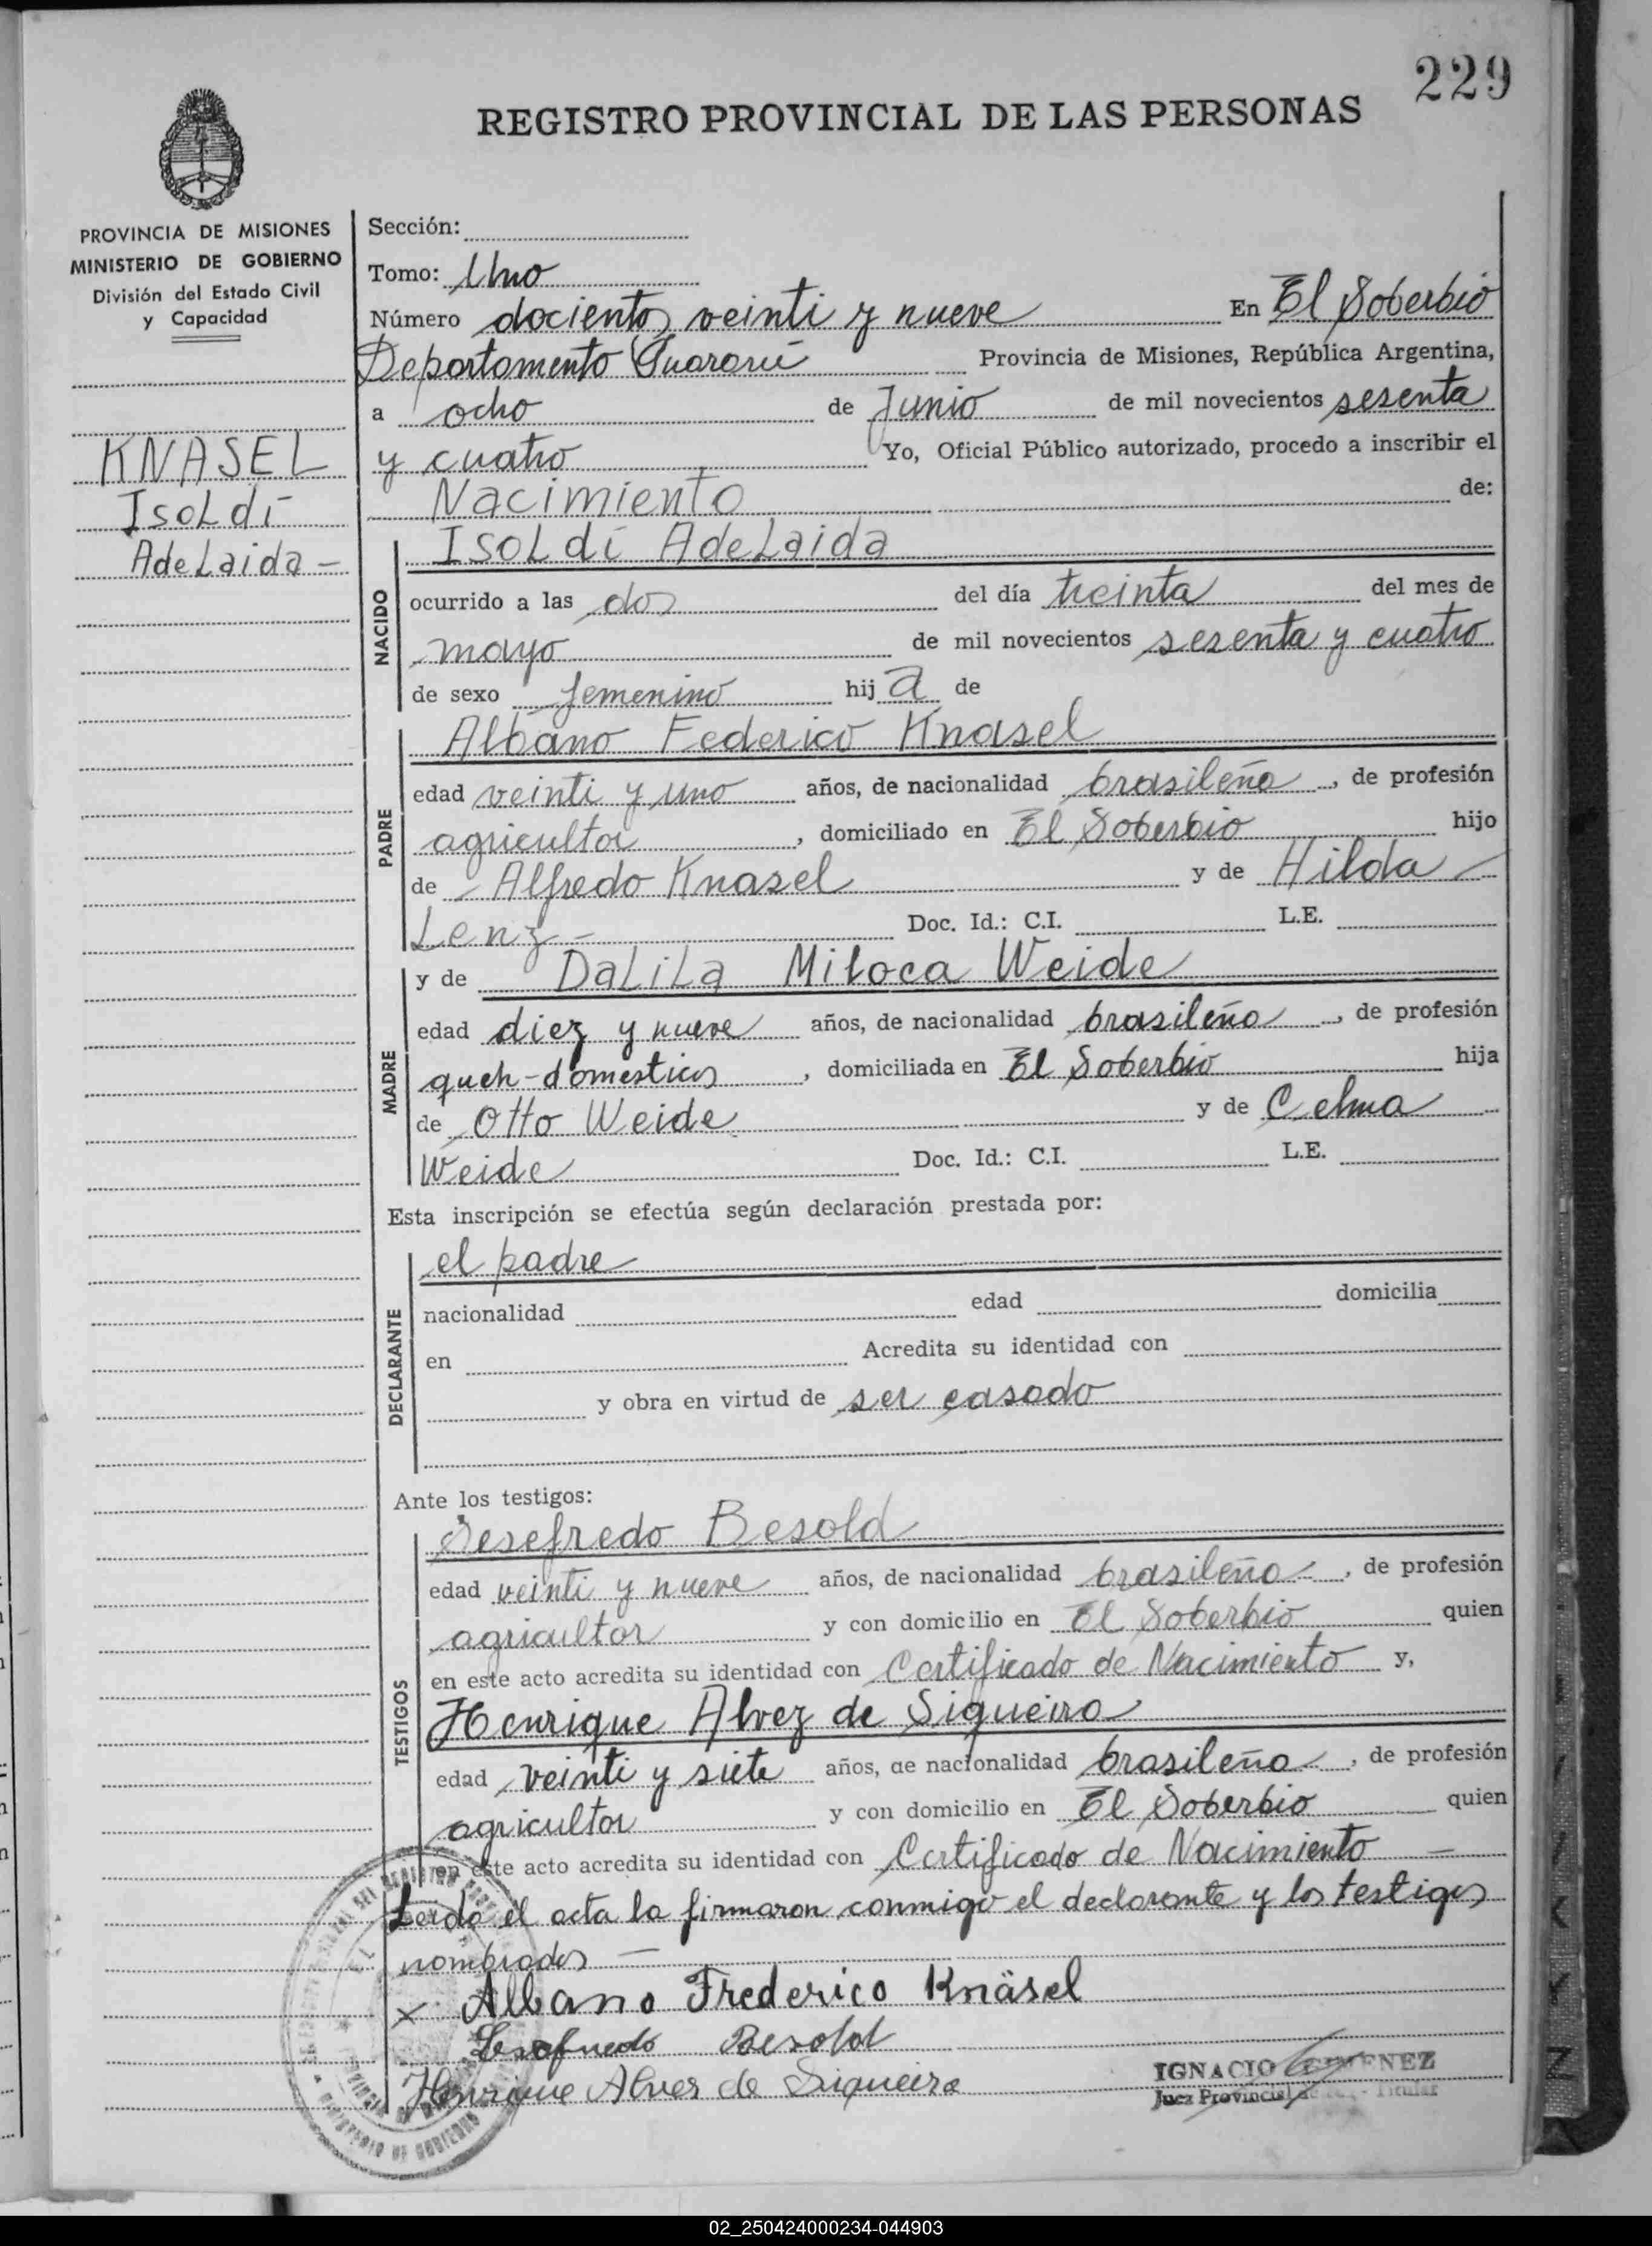 229
REGISTRO PROVINCIAL DE LAS PERSONAS
PROVINCIA DE MISIONES
MINISTERIO DE GOBIERNO
División del Estado Civil
y Capacidad
KNASEL
Isoldi
Adelaida -
Sección:
Tomo: Uno
Número dociento veinti y nueve En El Soberbio
Departamento Guaraní Provincia de Misiones, República Argentina,
a ocho de Junio de mil novecientos sesenta
y cuatro Yo, Oficial Público autorizado, procedo a inscribir el
Nacimiento de:
NACIDO
Isoldi Adelaida
ocurrido a las dos del día treinta del mes de
mayo de mil novecientos sesenta y cuatro
de sexo femenino hija de
PADRE
Albano Federico Knasel
edad veinti y uno años, de nacionalidad brasileña, de profesión
agricultor, domiciliado en El Soberbio hijo
de Alfredo Knasel y de Hilda
Lenz - Doc. Id.: C.I. L.E.
MADRE
y de Dalila Miloca Weide
edad diez y nueve años, de nacionalidad brasileña, de profesión
queh-domesticos, domiciliada en El Soberbio hija
de Otto Weide y de Celma
Weide Doc. Id.: C.I. L.E.
Esta inscripción se efectúa según declaración prestada por:
DECLARANTE
el padre
nacionalidad edad domicilia
en Acredita su identidad con
y obra en virtud de ser casado
Ante los testigos:
TESTIGOS
Besold
edad veinti y nueve años, de nacionalidad brasileña, de profesión
agricultor y con domicilio en El Soberbio quien
en este acto acredita su identidad con Certificado de Nacimiento y,
Henrique Alvez de Siqueira
edad veinti y siete años, de nacionalidad brasileña, de profesión
agricultor y con domicilio en El Soberbio quien
en este acto acredita su identidad con Certificado de Nacimiento -
Leida el acta la firmaron conmigo el declarante y los testigos
nombrados -
x Albano Frederico Knäsel
Besold
Henrique Alves de Siqueira
IGNACIO GIMENEZ
Juez Provincial de Titular
02_250424000234-044903